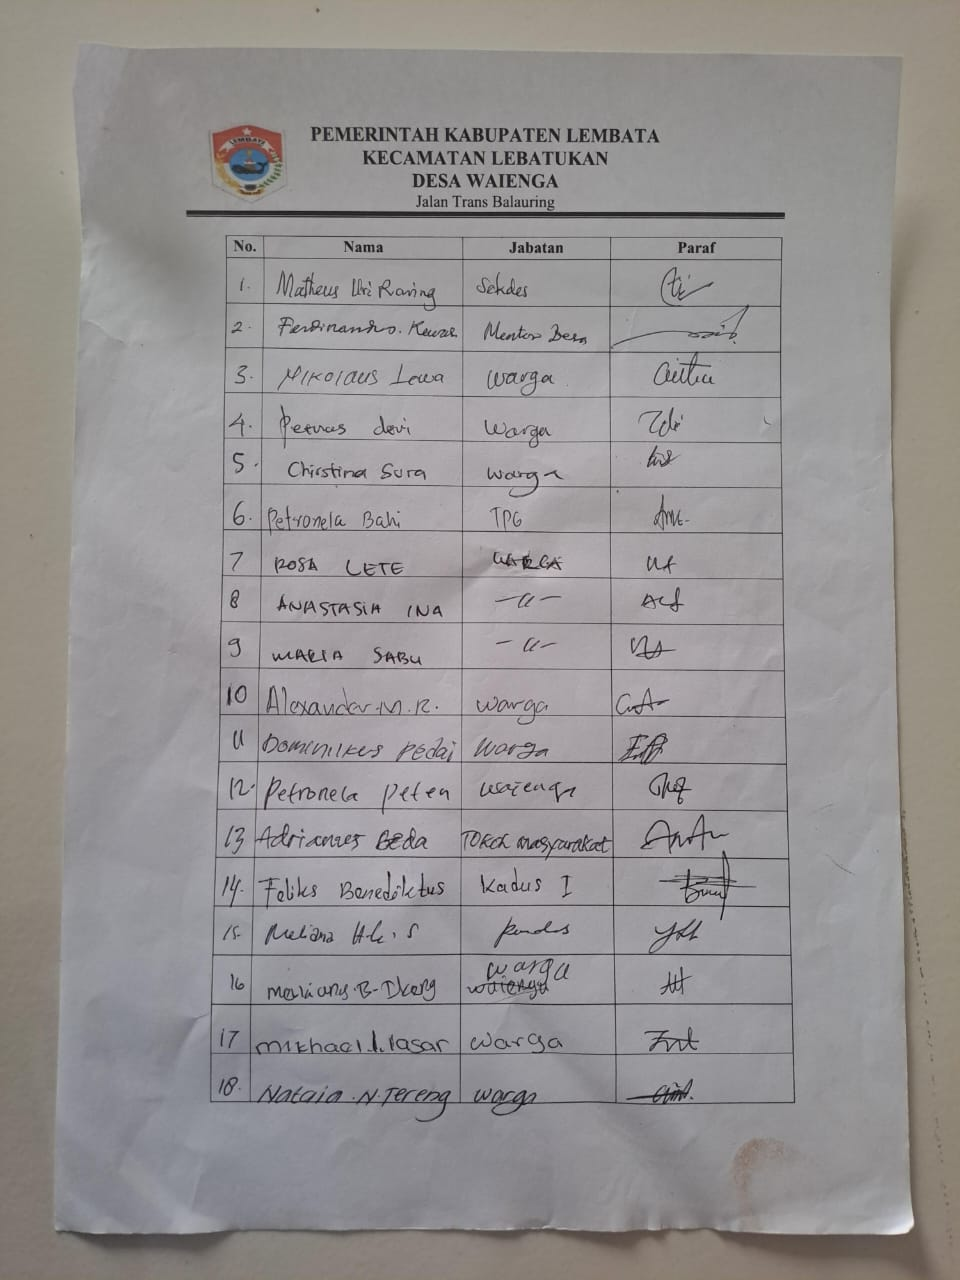 LEMBATA
PEMERINTAH KABUPATEN LEMBATA
KECAMATAN LEBATUKAN
DESA WAIENGA
Jalan Trans Balauring
No. Nama Jabatan Paraf
1. Matheus Raring Sekdes
2. Ferdinandus. Mentor Desa
3. Nikolaus Lewa Warga
4. Petrus devi Warga
5. Chirstina Sura warga
6. Petronela Bahi TPG
7 ROSA LETE WARGA
8 ANASTASIA INA -"-
9 MARIA SABU -"-
10 Alexander.M.R. Warga
11 Dominikus Pedai Warga
12. Petronela Peten Waienga
13 Adrianus Beda Tokoh masyarakat
14. Feliks Benediktus Kadus I
15. Meliana H. S
16 B. warga waienga
17 Mikhael.l.lasar Warga
18. N.Tereng Warga